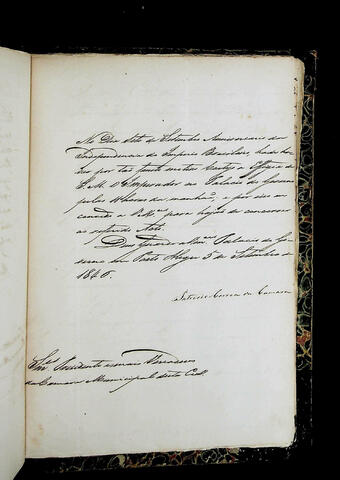 No Dia sete de Setembro Anniversario da
Independencia do Imperio Brasileiro, hade ha-
ver por tão fausto motivo Cortejo a Effigie de
S. M. O Imperador no Palacio do Governo
pelas horas da manhã, e por isso
convido a V. M.ces para hajão de concorrer
ao referido Acto.
Deos Guarde a V. M.ces Palacio do Go-
verno em Porto Alegre 3 de Setembro de
1846.
Patricio Correa da Camara
Snr.es Presidente e mais Vereadores
da Camara Municipal desta Cid.e